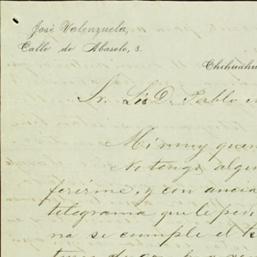 José Valenzuela,
Calle de Abasolo, 3.
Chihuahu
Sr. Lis D. Pablo
Mi muy quer
No tengo algun
ferirme, y con ancia
telegrama que le pon
na se cumple el